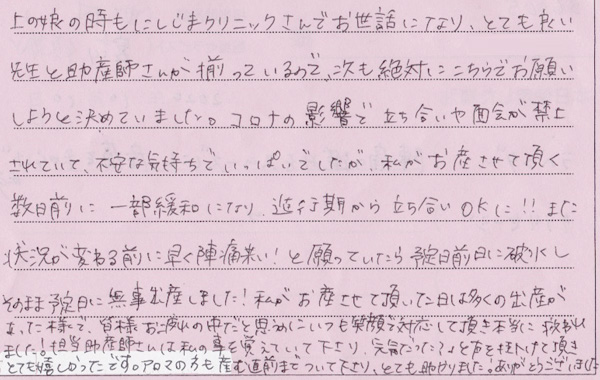 上の娘の時もにしじまクリニックさんでお世話になり、とても良い
先生と助産師さんが揃っているので、次も絶対にこちらでお願い
しようと決めていました。コロナの影響で立ち合いや面会が禁止
されていて、不安な気持ちでいっぱいでしたが、私がお産させて頂く
数日前に一部緩和になり、進行期から立ち合いOKに!!また
状況が変わる前に早く陣痛来い!と願っていたら予定日前日に破水し
そのまま予定日に無事出産しました!私がお産させて頂いた日は多くの出産が
あった様で、皆様お疲れの中だと思うのにいつも笑顔で対応して頂き本当に
ました。!担当助産師さんは私の事を覚えていて下さり、元気だった?と声を掛けて頂き
とても嬉しかったです。アロマの方も産む直前までついて下さり、とても助かりました。ありがとうございました